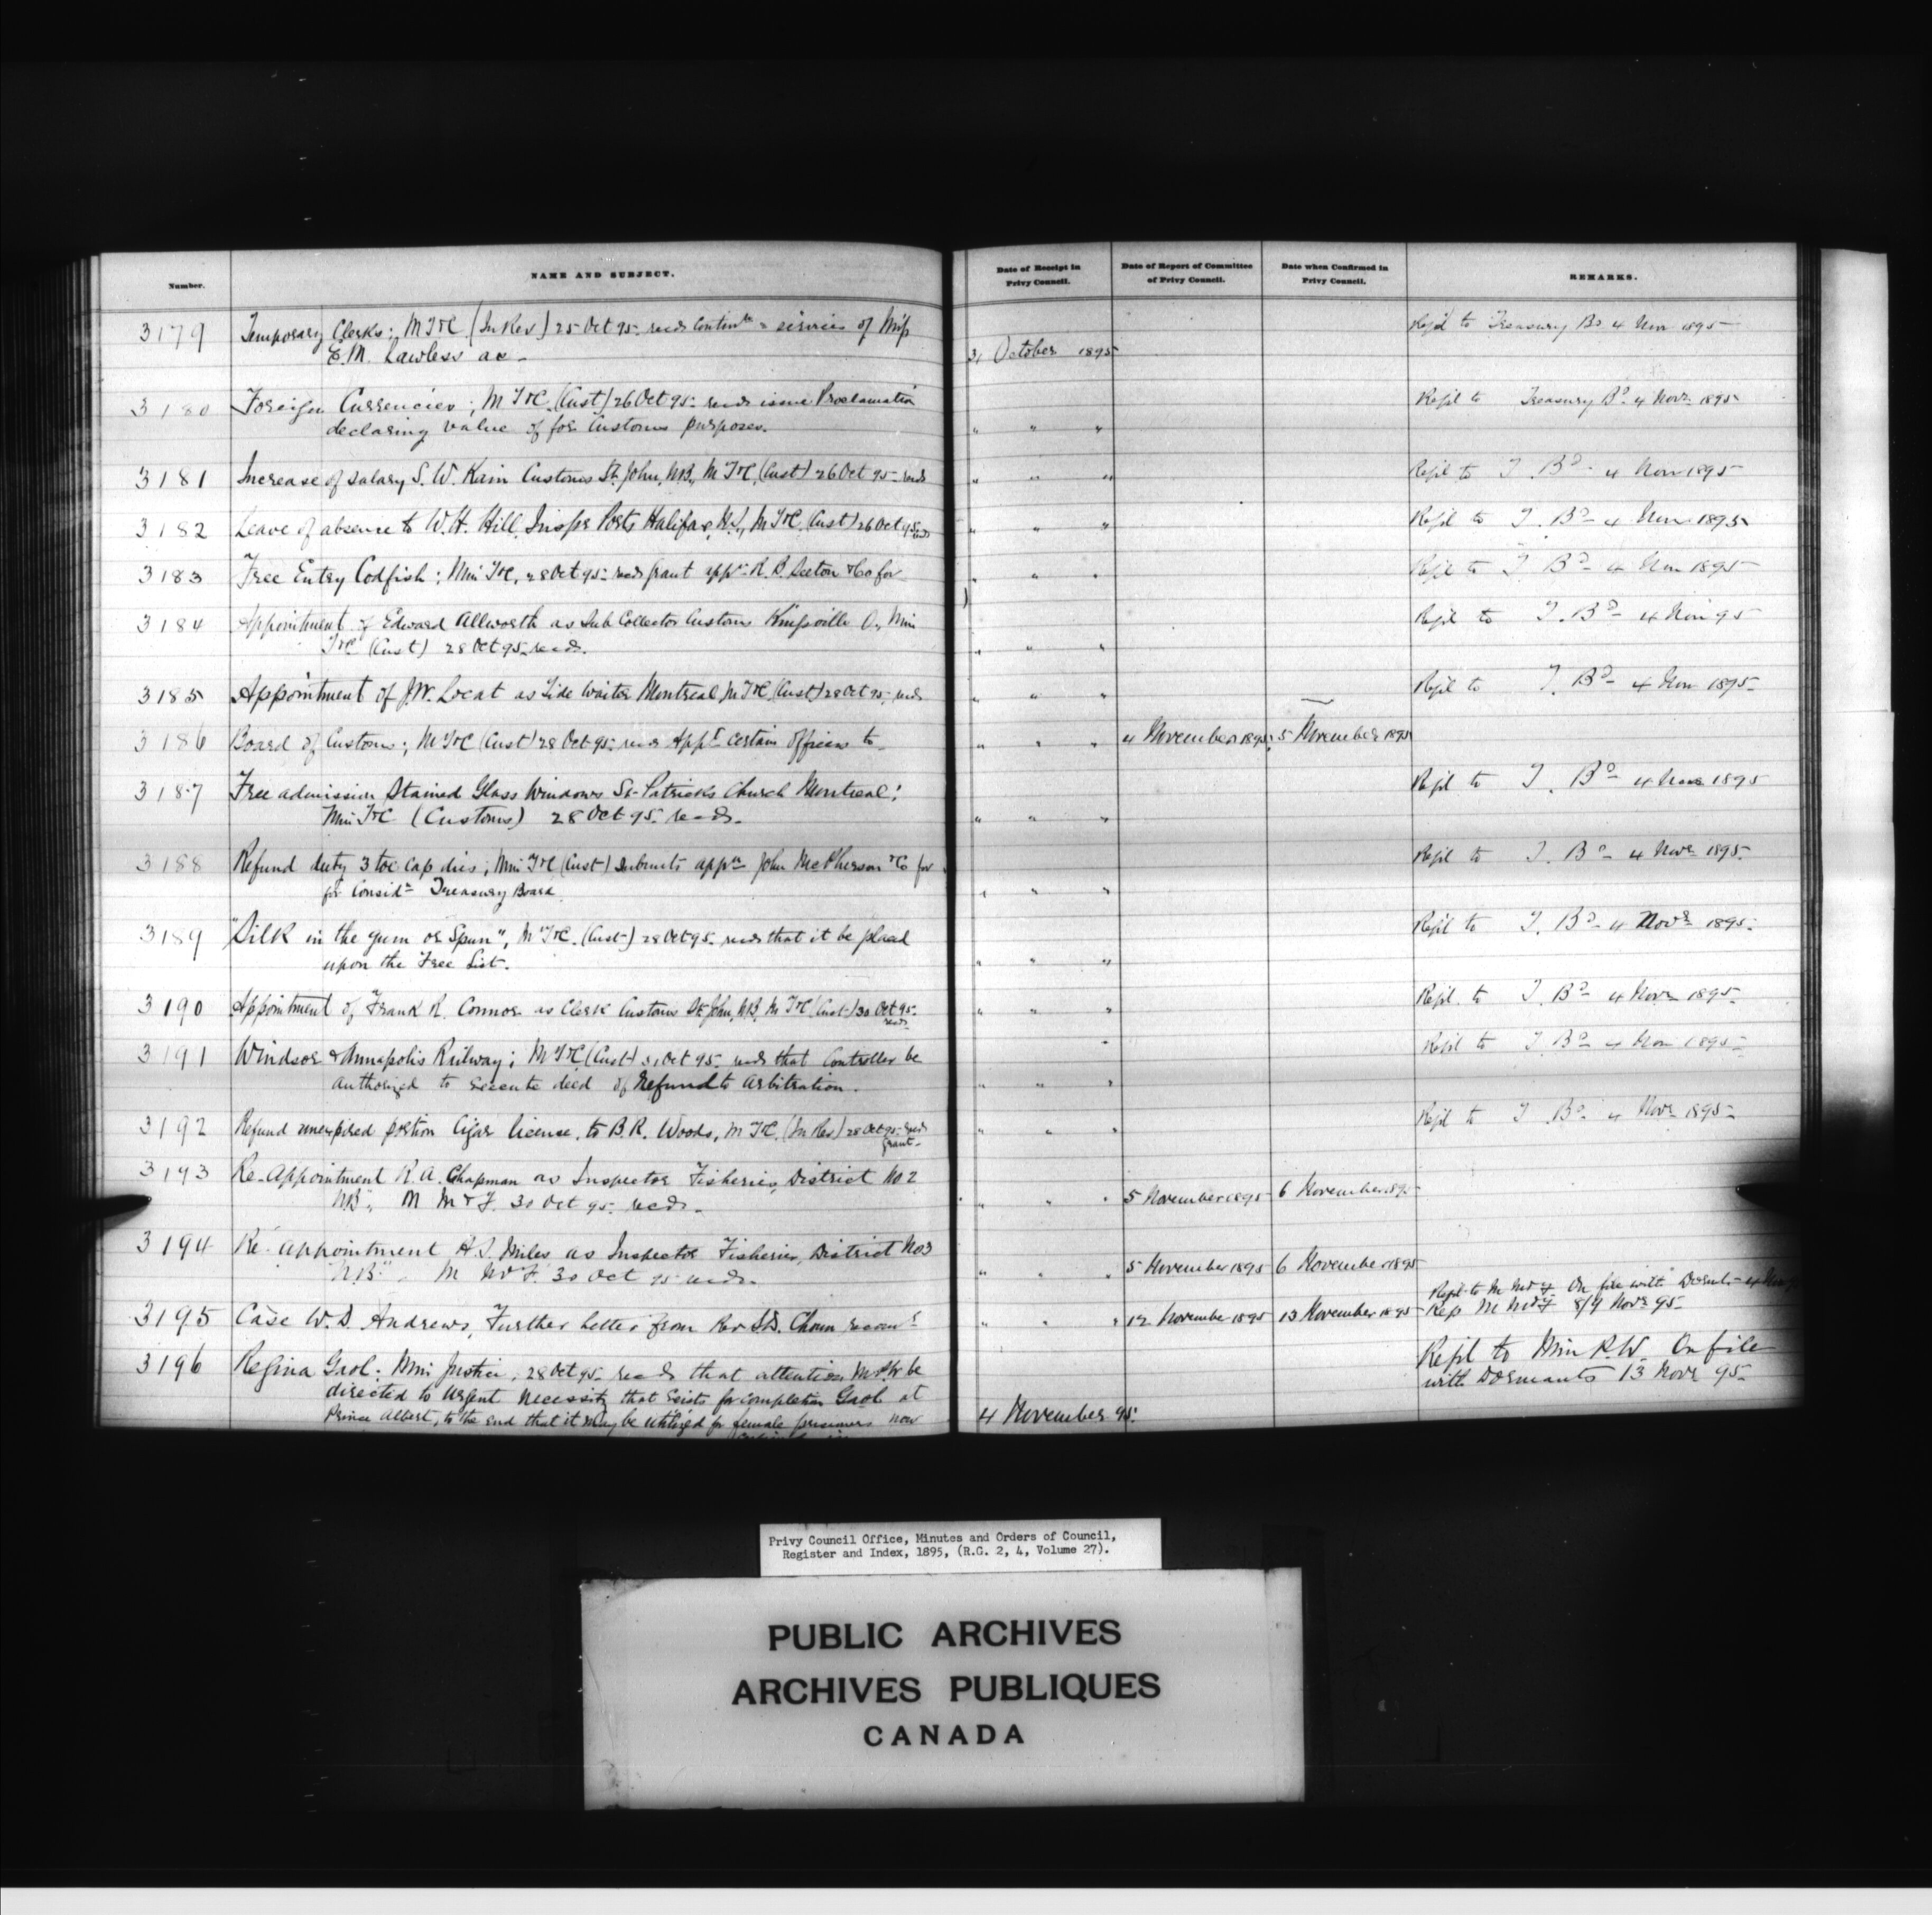 Number. NAME AND SUBJECT. Date of Receipt in Privy Council. Date of Report of Committee of Privy Council. Date when Confirmed in Privy Council. REMARKS.
3179 Temporary Clerks; M T&C (In Rev) 25 Oct 95 recds Contince services of Miss Refd to Treasury Bd 4 Nov 1895
E.M. Lawless as - 31 October 1895
3180 Foreign Currencies; M T&C (Cust) 26 Oct 95 recds issue Proclamation Refd to Treasury Bd 4 Novr 1895
declaring value of for Customs purposes. " " "
3181 Increase of salary S. W. Kain Customs St. John, N.B., M T&C, (Cust) 26 Oct 95 recds " " " Refd to T. Bd 4 Nov 1895
3182 Leave of absence to W. H. Hill, Inspr Ports Halifax, N.S., M T&C, (Cust) 26 Oct 95 recds " " " Refd to T. Bd 4 Nov 1895
3183 Free Entry Codfish; Min T&C, 28 Oct 95 recds grant appn R. B. Seeton & Co for " " " Refd to T. Bd 4 Nov 1895
3184 Appointment of Edward Allworth as Sub Collector Customs Kingsville O, Min Refd to T. Bd 4 Nov 95
T&C (Cust) 28 Oct 95 recds. " " "
3185 Appointment of J.W. Locat as Tide Waiter Montreal M T&C (Cust) 28 Oct 95, recds " " " Refd to T. Bd 4 Nov 1895
3186 Board of Customs; M T&C (Cust) 28 Oct 95 recds Appt certain officers to " " " 4 November 1895 5 November 1895
3187 Free admission Stained Glass Windows St. Patricks Church Montreal; Refd to T. Bd 4 Nov 1895
Min T&C (Customs) 28 Oct 95 recds. " " "
3188 Refund duty 3 toe cap dies; Min T&C (Cust) submits appn John McPherson & Co for Refd to T. Bd 4 Novr 1895
for Considn Treasury Board " " "
3189 "Silk in the gum or Spun", M T&C. (Cust) 28 Oct 95 recds that it be placed Refd to T. Bd 4 Novr 1895
upon the Free List. " " "
3190 Appointment of Frank R. Connor as Clerk Customs St John, N.B. M T&C (Cust) 30 Oct 95 recds " " " Refd. to T. Bd 4 Novr 1895
3191 Windsor & Annapolis Railway; M T&C (Cust) 31 Oct 95 recds that Controller be Refd to T. Bd 4 Nov 1895
authorized to execute deed of Refund to arbitration. " " "
3192 Refund unexpired portion Cigar license, to B. R. Woods, M T&C, (In Rev) 28 Oct 95 recds grant " " " Refd to T. Bd 4 Novr 1895
3193 Re-Appointment R. A. Chapman as Inspector Fisheries, District No 2
N.B., M M & F. 30 Oct 95 recds. " " " 5 November 1895 6 November 1895
3194 Re-appointment H. S. Miles as Inspector Fisheries, District No 3
N.B. M M & F. 30 Oct 95 recds. " " " 5 November 1895 6 November 1895
Refd to M M & F On file with Dormts 4 Nov
3195 Case W. D Andrews, Further letter from Rev S.D. Chown " " " 12 November 1895 13 November 1895 Rep M M & F 8/9 Novr 95
3196 Regina Gaol; Min Justice, 28 Oct 95 recds that attention M P.W be Refd to Min P.W. On file
directed to urgent necessity that exists for completion Gaol at with Dormants 13 Novr 95
Prince Albert, to the end that it may be utilized for female prisoners now 4 November 95.
Privy Council Office, Minutes and Orders of Council,
Register and Index, 1895, (R.G. 2, 4, Volume 27).
PUBLIC ARCHIVES
ARCHIVES PUBLIQUES
CANADA